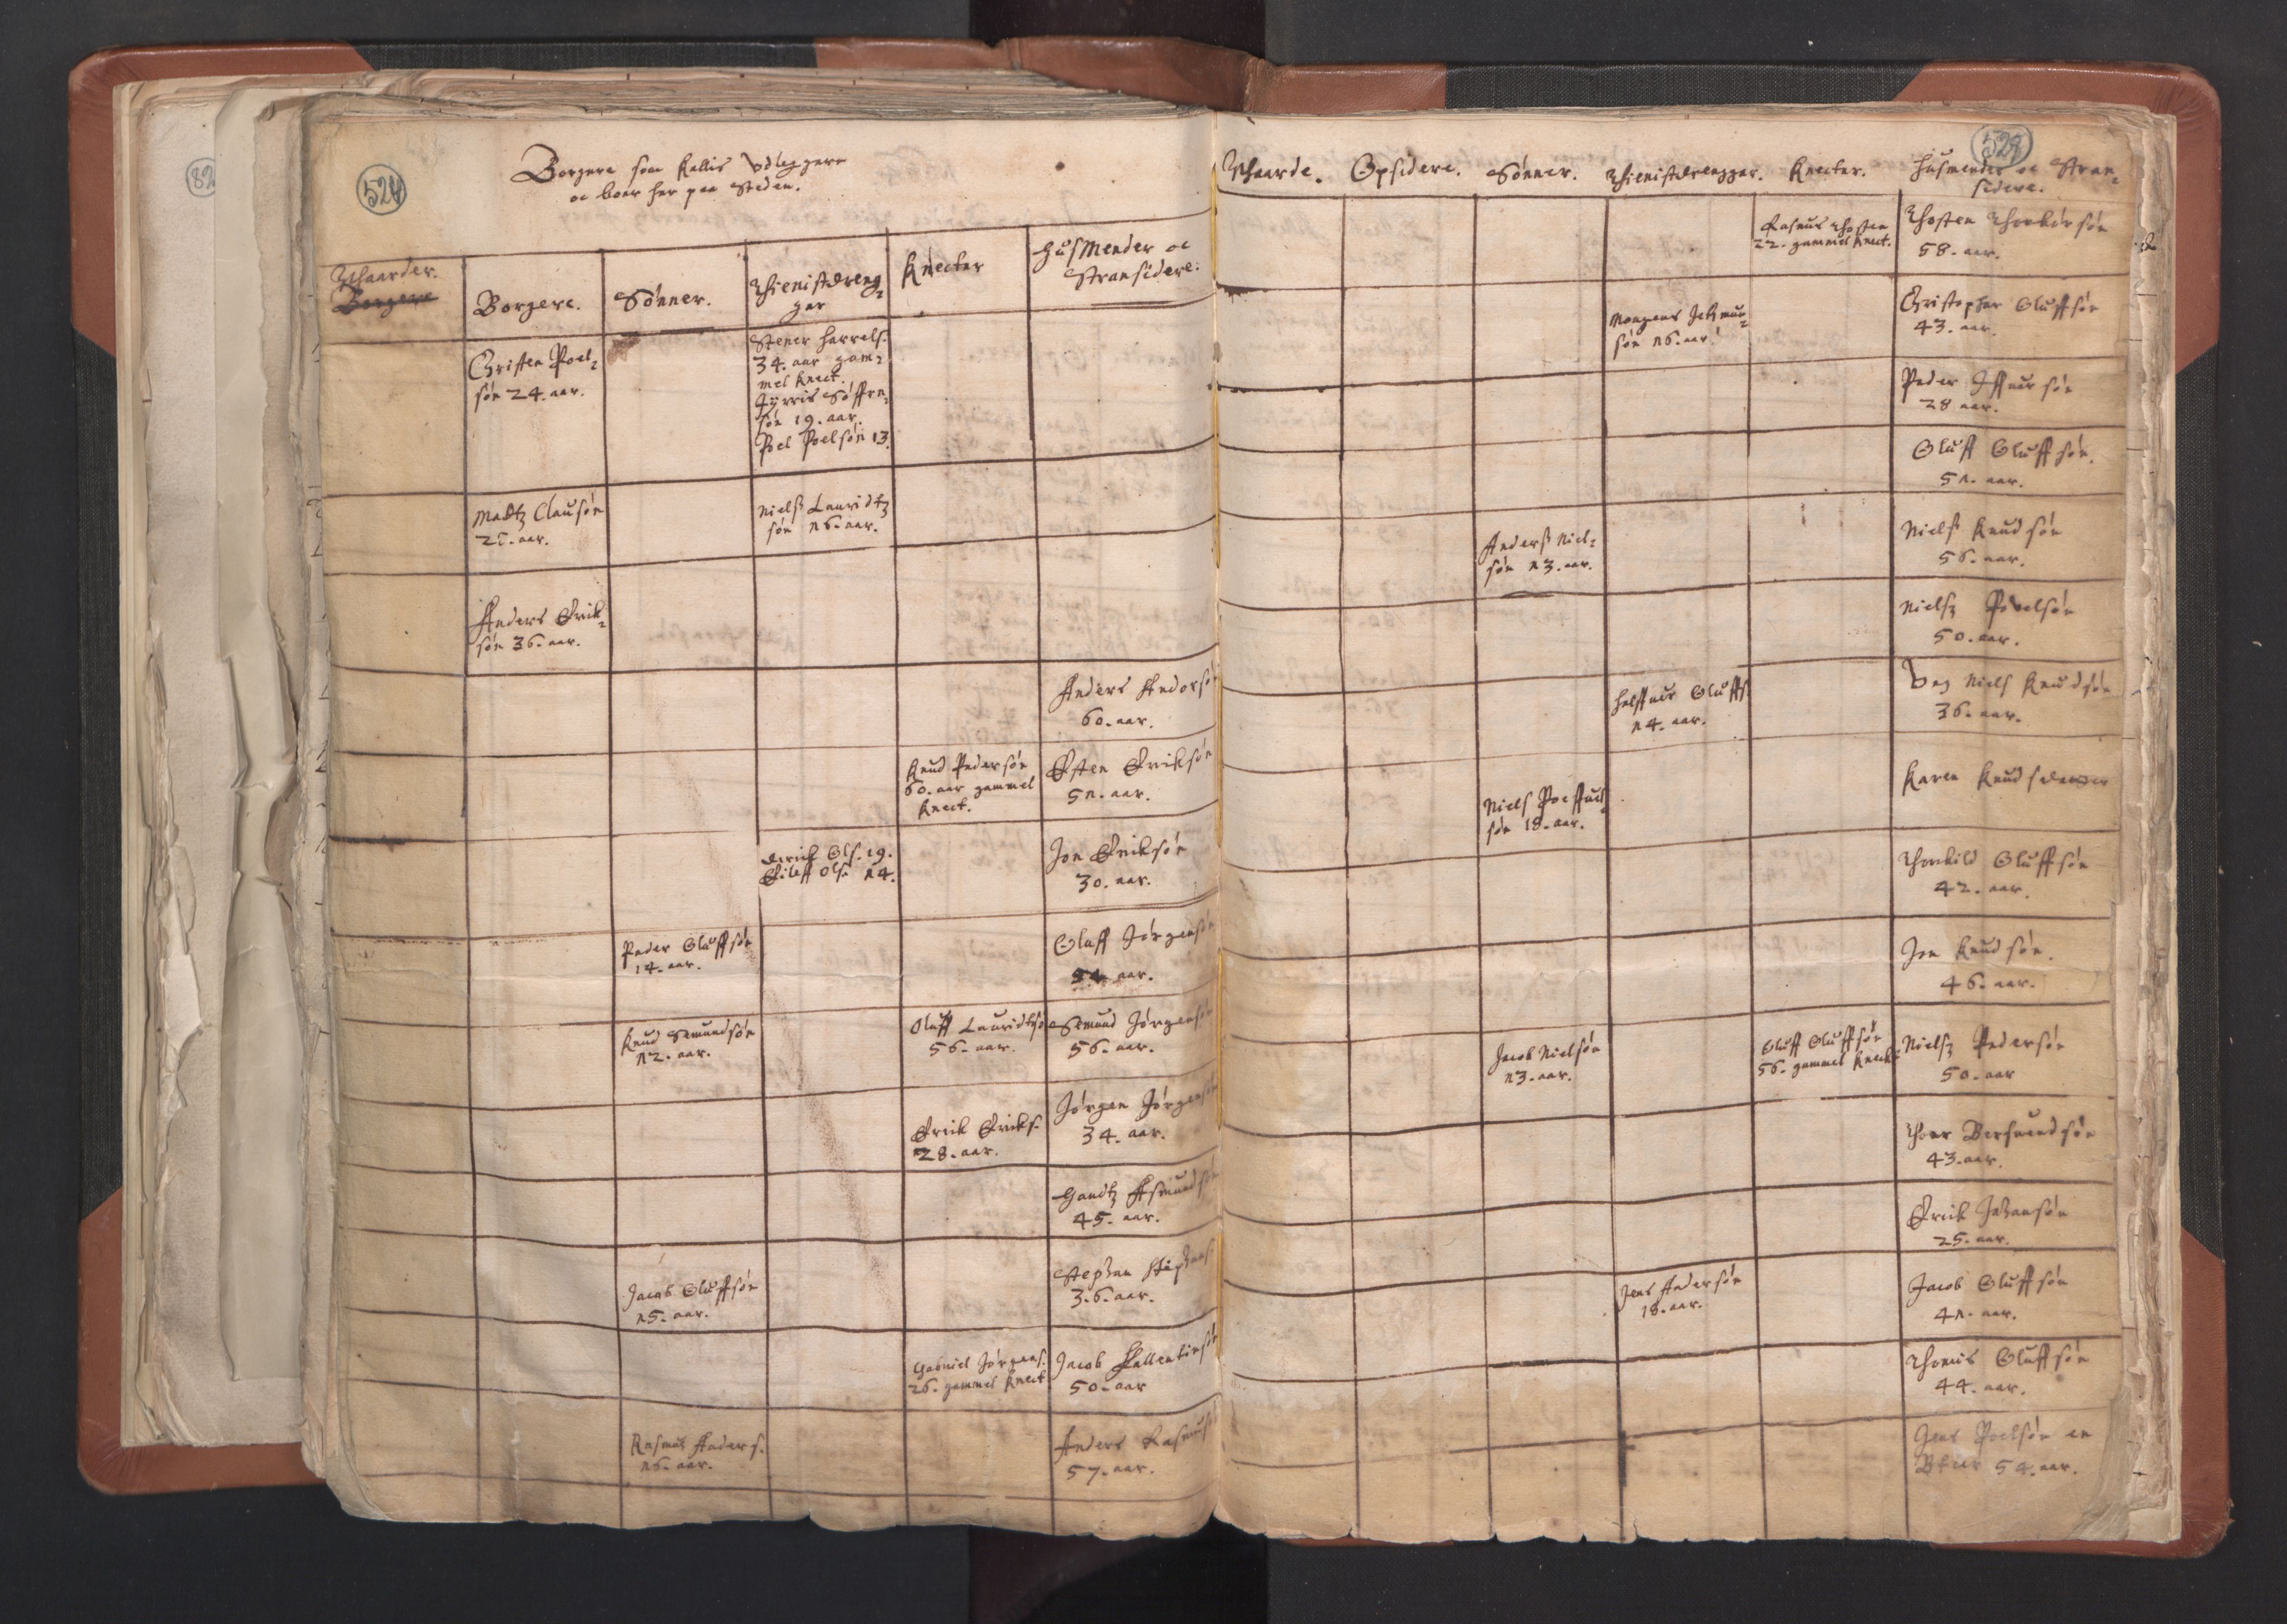 528
Borgere som kallis Vdleggere
oc boer her paa Steden.
Thaarder.
Borgere
Borgere.
Sønner.
Thienistdreng=
ger
Knecter
HusMender oc
Stransidere.
Christen Poel=
søn 24. aar.
Stener Harrels.
34. aar gam=
mel knect.
Jyrris Søffren
søn 19. aar.
Poel Poelsøn 13.
Madtz Clausøn
Nielss Lauridtz
søn 16. aar.
Anders Erik=
søn 36. aar.
Anders Anders
60. aar.
Knud Pedersøn
60. aar gammel
knect.
Østen Eriksøn
51. aar.
Erick Ols. 19.
Eileff Ols. 14.
Jon Eriksøn
30. aar.
Peder Oluffsøn
14. aar.
Oluff Jørgensøn
aar.
Knud Semundsøn
12. aar.
Oluff Lauridtsø
56. aar.
Semund Jørgensøn
56. aar.
Erick Ericks.
28. aar.
Jørgen Jørgensøn
34. aar.
Handtz Asmundsøn
45. aar.
Jacob Oluffsøn
15. aar.
Stephan Stephans
36. aar.
Gabriel Jørgens.
26. gammel knect
Jacob Fallentinsøn
50. aar
Rasmus Anders.
16. aar.
Anders Rasmus
57. aar.
529
Thaarde.
Opsidere.
Sønner.
Thienistdrengger.
Knecter.
Husmender oc Stran=
sidere.
Rasmus Thosten
22. gammel knect.
Thosten Thorkirsøn
58. aar.
søn 16. aar.
Christopher Oluffsøn
43. aar.
Peder Iffuersøn
28 aar.
Oluff Oluffsøn.
51. aar.
Anderss Niel=
søn 13. aar.
Nielss Knudsøn
56. aar.
Nielss Povelsøn
50. aar.
Oluffs
14. aar.
Vng Niels Knudsøn
36. aar.
Niels
søn 18. aar.
Karen Knudsdatter
Thorkild Oluffsøn
42. aar.
Jon Knudsøn.
46. aar.
Jacob Nielsøn
13. aar.
Oluff Oluffsøn
56. gammel knect
Nielss Pedersøn
50. aar
Thoer Bersuendsøn
43. aar.
Erick Johansøn
25. aar.
Jens Andersøn
18. aar.
Jacob Oluffsøn
41. aar.
Thomis Oluffsøn
44. aar.
Jens Poelsøn en
54. aar.